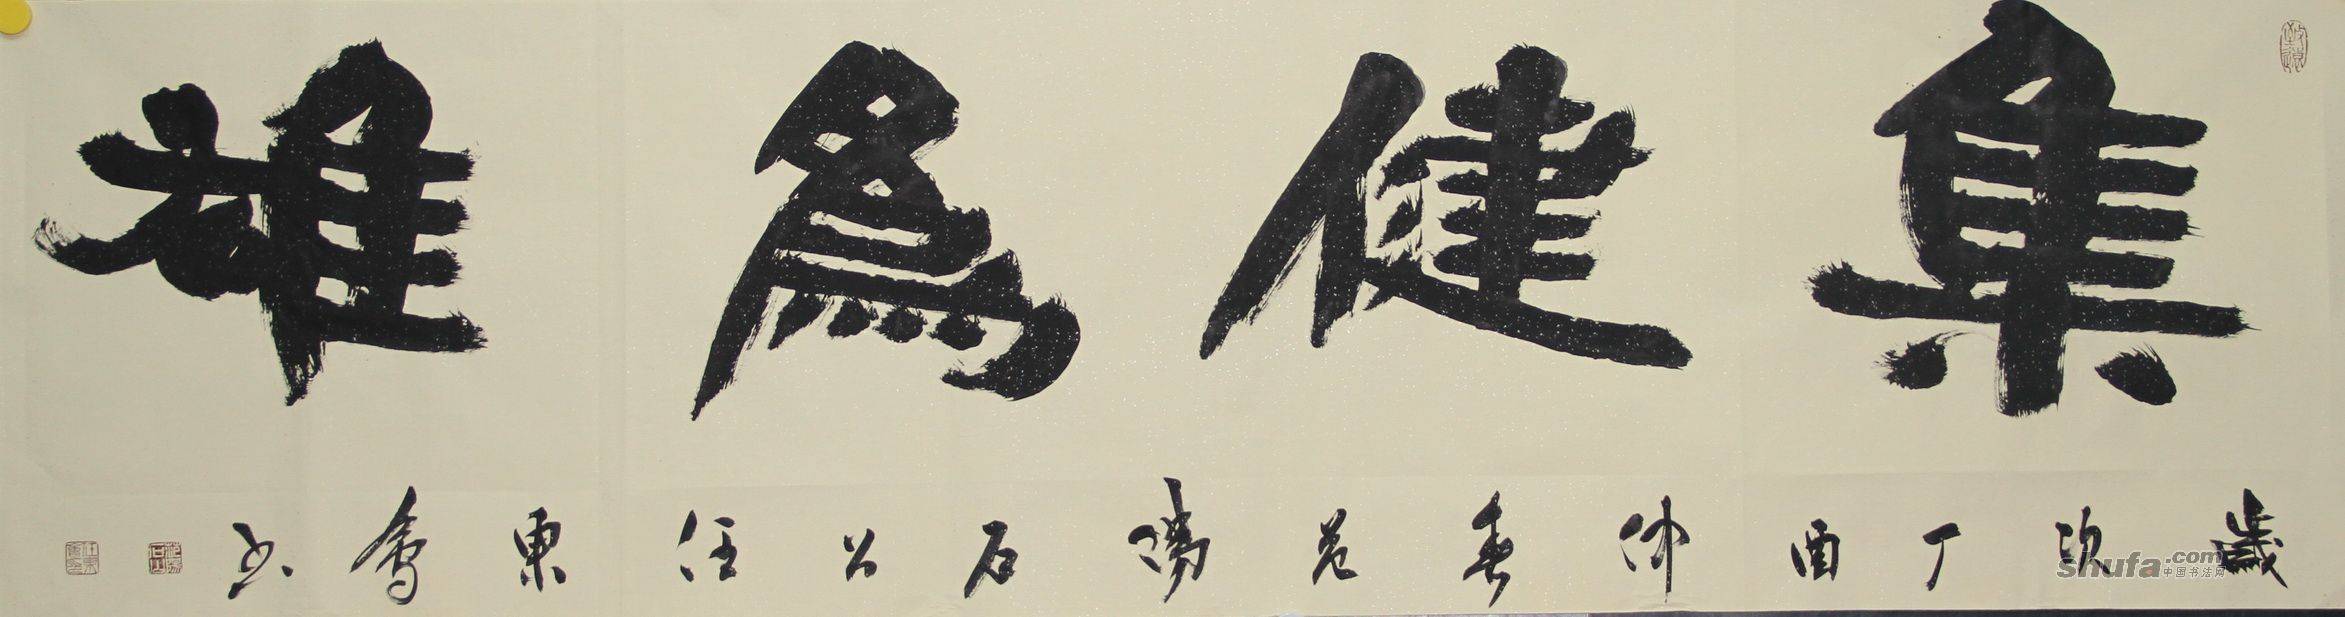 集健為雄
歲次丁酉仲春范陽石公任東書
shufa.com
中国书法网